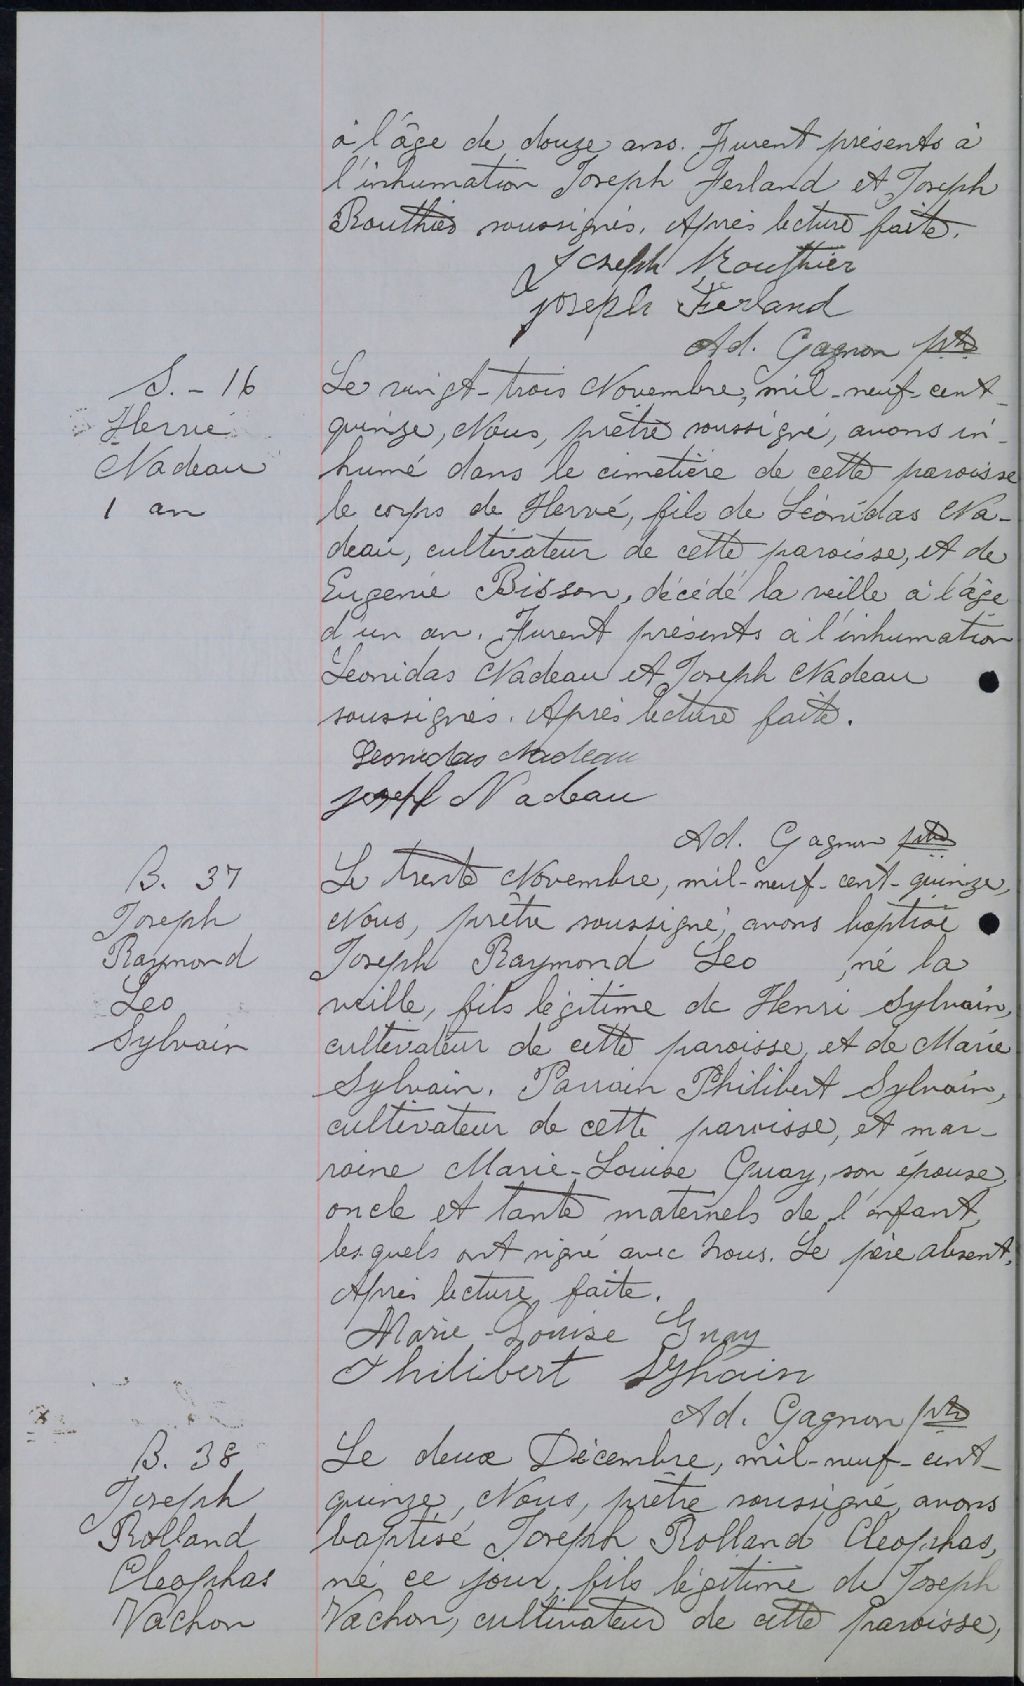 à l'âge de douze ans. Furent présents à
l'inhumation Joseph Ferland et Joseph
Routhier soussignés. Après lecture faite.
Joseph Routhier
Joseph Ferland
Ad. Gagnon ptre
S. - 16
Hervé
Nadeau
1 an
Le vingt-trois Novembre, mil-neuf-cent-
quinze, Nous, prêtre soussigné, avons in-
humé dans le cimetière de cette paroisse
le corps de Hervé, fils de Léonidas Na-
deau, cultivateur de cette paroisse, et de
Eugénie Bisson, décédé la veille à l'âge
d'un an. Furent présents à l'inhumation
Leonidas Nadeau et Joseph Nadeau
soussignés. Après lecture faite.
Leonidas Nadeau
joseph Nadeau
Ad. Gagnon ptre
B. 37
Joseph
Raymond
Leo
Sylvain
Le trente Novembre, mil-neuf-cent-quinze,
Nous, prêtre soussigné, avons baptisé
Joseph Raymond Leo, né la
veille, fils légitime de Henri Sylvain,
cultivateur de cette paroisse, et de Marie
Sylvain. Parrain Philibert Sylvain,
cultivateur de cette paroisse, et mar-
raine Marie-Louise Guay, son épouse,
oncle et tante maternels de l'enfant,
lesquels ont signé avec nous. Le père absent.
Après lecture faite.
Marie-Louise Guay
Philibert Sylvain
Ad. Gagnon ptre
B. 38
Joseph
Rolland
Cleophas
Vachon
Le deux Décembre, mil-neuf-cent-
quinze, Nous, prêtre soussigné, avons
baptisé Joseph Rolland Cleophas,
né ce jour, fils légitime de Joseph
Vachon, cultivateur de cette paroisse,